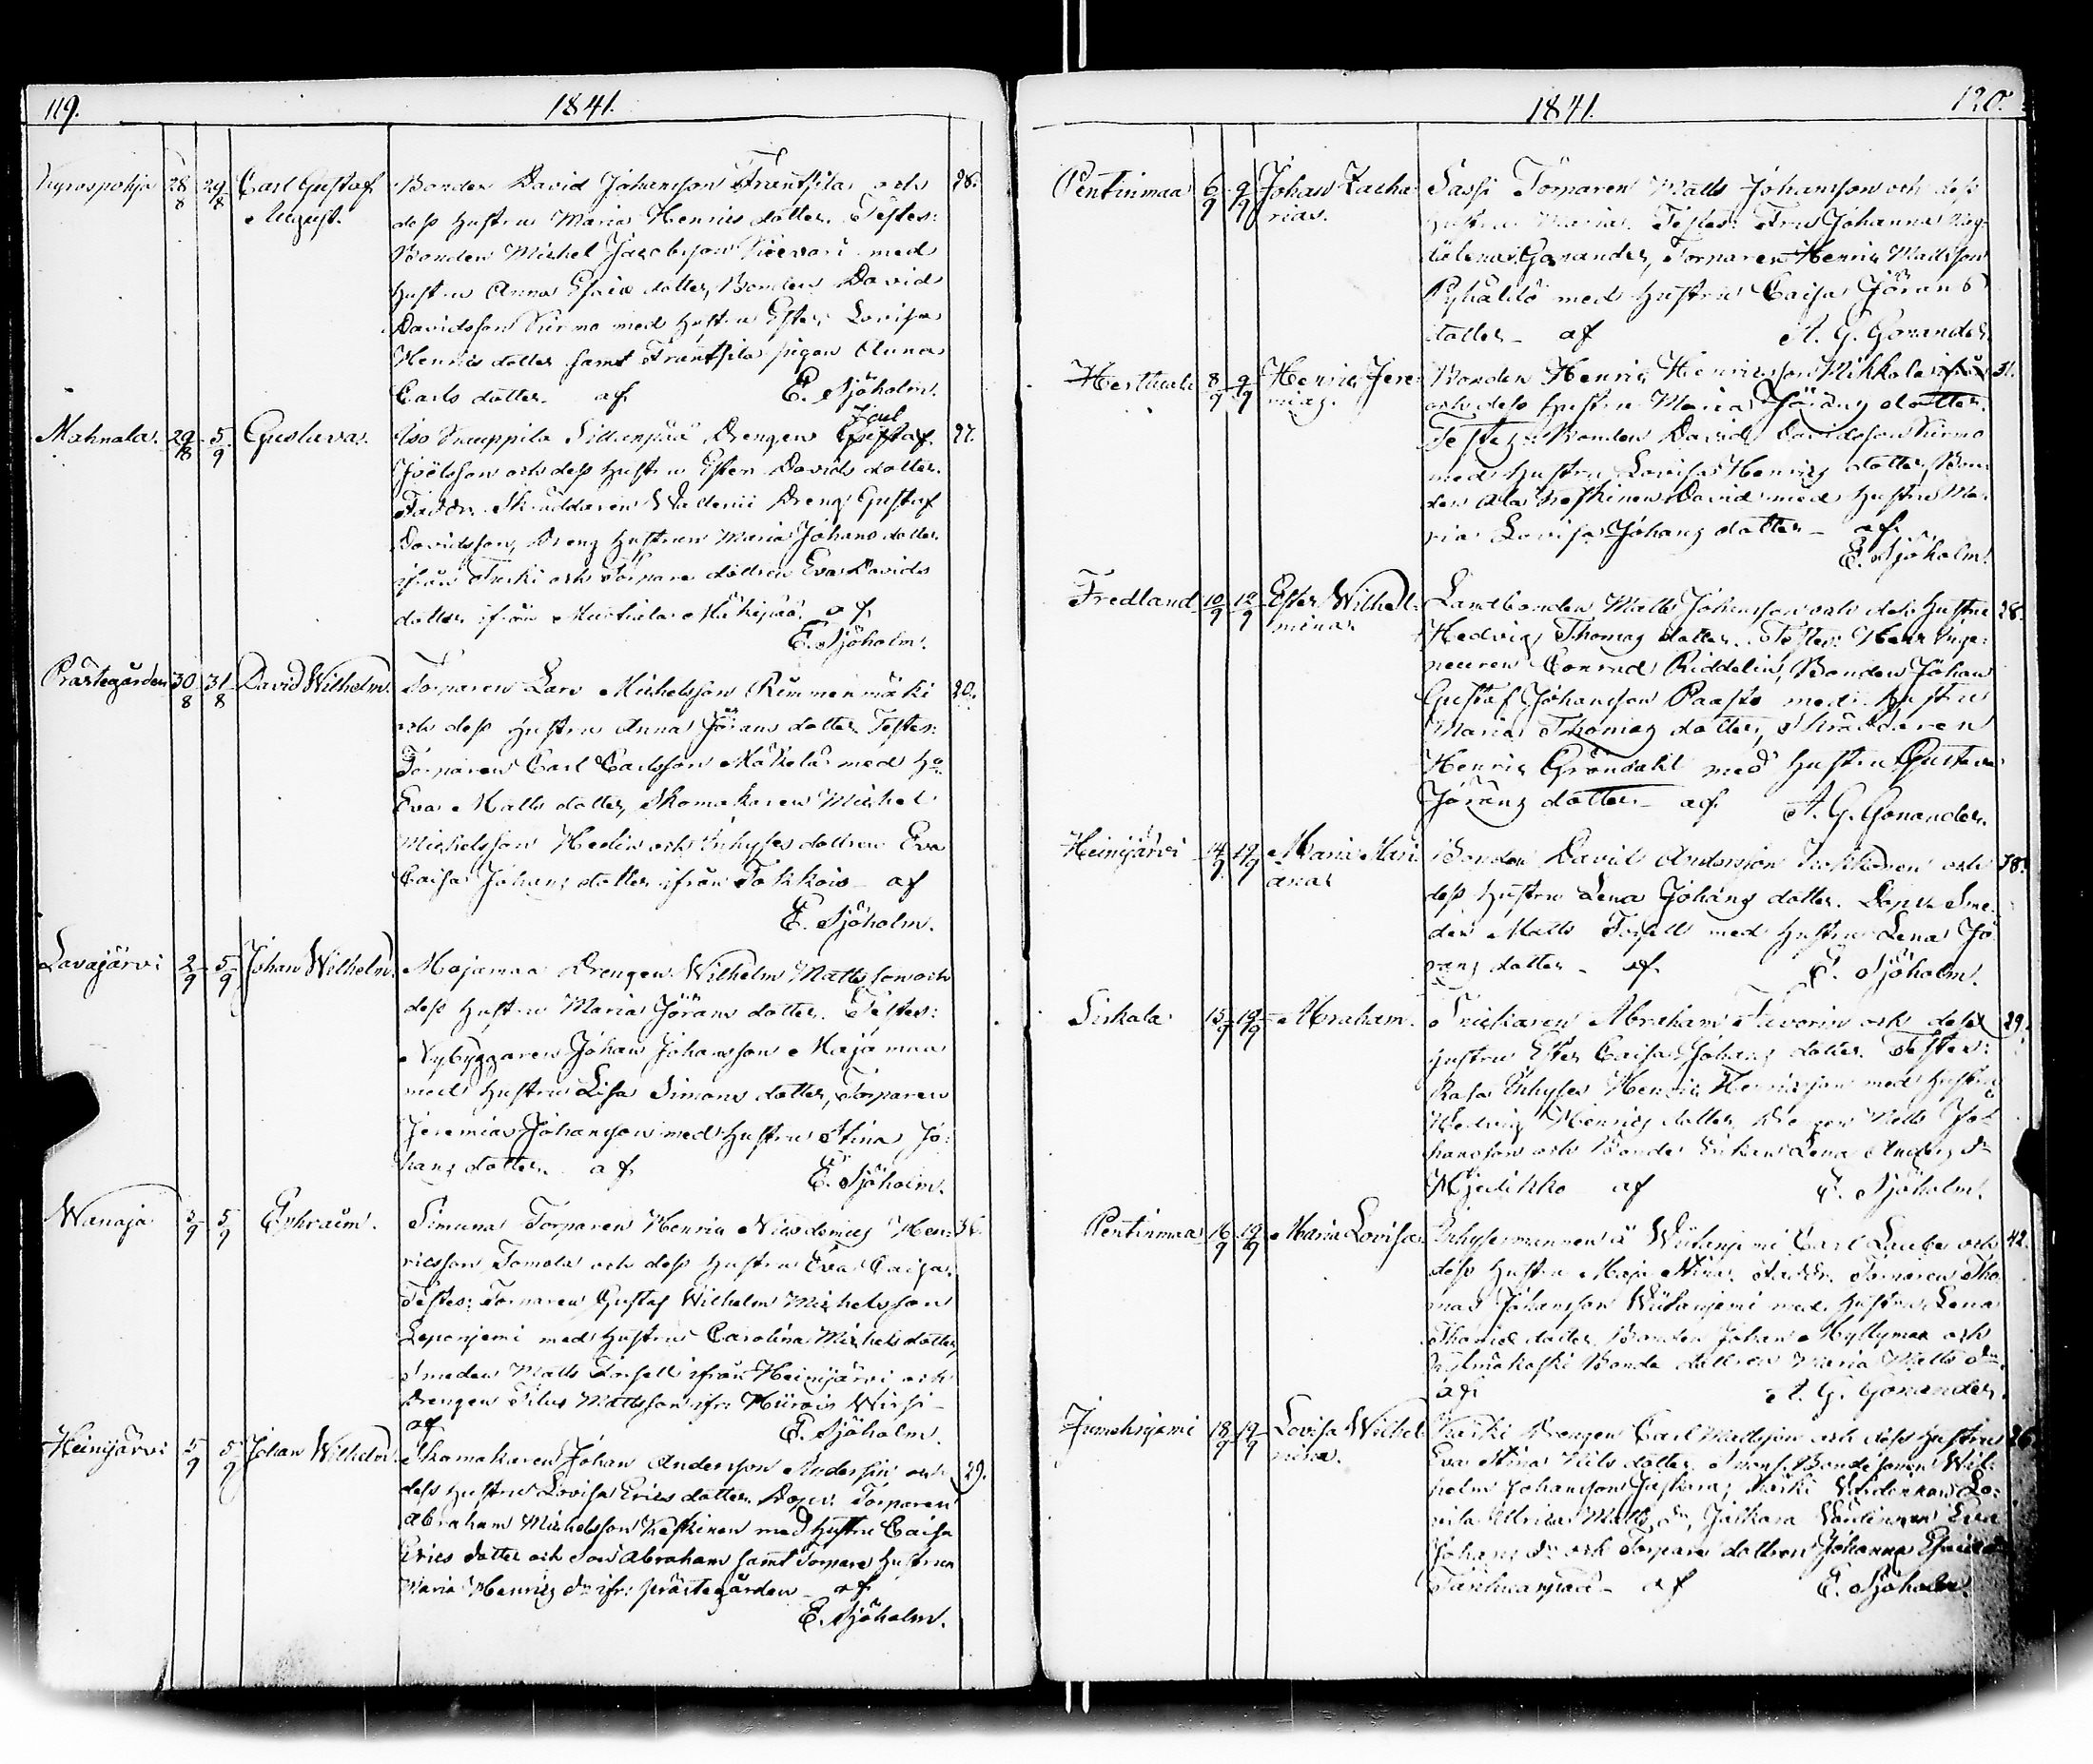 119. 1841.
Kyrospohja 28/8 29/8 Carl Gustaf Bonden David Johansson Frantsila och 28.
August. dess hustru Maria Henrics dotter. Testes:
Bonden Michel Jacobsson med
hustru Anna Esaias dotter, Bonden David
Davidsson Kurmo med hustru Ester Lovisa
Henrics dotter samt Frantsila pigan Anna
Carls dotter. af E. Sjöholm.
Joel
Mahnala. 29/8 5/9 Gustava. Iso Knuuppila Sillanpää Drengen Gustaf 27.
Joelsson och dess hustru Ester Davids dotter.
Faddr. Skräddaren Dreng Gustaf
Davidsson, Dreng hustrun Maria Johans dotter
ifrån Turki och Torpare dottren Eva Davids
dotter ifrån Mäkipää. af
E. Sjöholm.
Prästegården 30/8 31/8 David Wilhelm. Torparen Lars Michelsson Rimmenmäki 20.
och dess hustru Anna Jörans dotter. Testes:
Torparen Carl Carlsson Mäkelä med Ho
Eva Matts dotter, Skomakaren Michel
Michelsson Hedin och Inhyses dottren Eva
Caisa Johans dotter ifrån Tokkois af
E. Sjöholm.
Lavajärvi 2/9 5/9 Johan Wilhelm. Majamaa Drengen Wilhelm Mattsson och
dess hustru Maria Jörans dotter. Testes:
Nybyggaren Johan Johansson Majamaa
med hustru Lisa Simons dotter, Torparen
Jeremias Johansson med hustru Stina Jo-
hans dotter. af E. Sjöholm.
Wanaja 3/9 5/9 Ephraim. Simuna Torparen Henric Nicodemus Hen- 36.
ricsson Tomola och dess hustru Eva Caisa.
Testes: Torparen Gustaf Wilhelm Michelsson
Lepänjemi med hustru Carolina Michels dotter,
Smeden Matts Torsell ifrån Heinijärvi och
Drengen Titus Mattsson ifr:
af E. Sjöholm.
Heinijärvi 5/9 5/9 Johan Wilhelm. Skomakaren Johan Andersson Anderssin och 29.
dess hustru Lovisa Erics dotter. Dopv: Torparen
Abraham Michelsson Keskinen med hustru Caisa
Erics dotter och Son Abraham samt Torpare hustrun
Maria Henrics dr ifr: prästegården af
E. Sjöholm.
1841. 120.
Pentinmaa 6/9 9/9 Johan Zacha Sassi Torparen Matts Johansson och dess
rias. hustru Maria. Testes: Fru Johanna Mag-
dalena Gonander, Torparen Henric Mattsson
Pyhältö med hustru Caisa Jörans
dotter af A. G. Gonander.
Herttuala 8/9 9/9 Henric Jere- Bonden Henric Henricsson Mikkola 31.
mias. och dess hustru Maria Jörans dotter.
Testes: Bonden David Davidsson Kurmo
med hustru Lovisa Henrics dotter, Bon-
den Ala Keskinen David med hustru Ma-
ria Lovisa Johans dotter af
E. Sjöholm.
Fredland 10/9 12/9 Ester Wilhel- Landbonden Matts Johansson och dess hustru 28.
mina. Hedvig Thomas dotter. Testes: Herr Inge-
neuren Conrad Riddelin, Bonden Johan
Gustaf Johansson Paasto med hustru
Maria Thomas dotter, Skräddaren
Henric Gröndahl med hustru Gustava
Jörans dotter af A. G. Gonander.
Heinijärvi 14/9 19/9 Maria Mari- Bonden David Andersson och 38.
ana. dess hustru Lena Johans dotter. Dopv. Sme-
den Matts Torsell med hustru Lena Jö-
rans dotter af E. Sjöholm.
Sirkala 15/9 19/9 Abraham. Snickaren Abraham Favorin och dess 29.
hustru Ester Caisa Johans dotter. Testes:
Rasa Inhyses Henric Henricsson med hustru
Hedvig Henrics dotter, Drengen Matts Jo-
hansson och Bonde Enkan Lena Anders dr
af E. Sjöholm.
Pentinmaa 16/9 19/9 Maria Lovisa Inhysesmannen å Wiitanjemi Carl och 42.
dess hustru Maja Stina. Faddr. Torparen Tho-
mas Johansson Wiitanjemi med hustru Lena
dotter, Bonden Johan Myllymaa och
Kylmäkoski Bonde dottren Maria Matts dr
af A. G. Gonander.
Jumehnjemi 18/9 19/9 Lovisa Wilhel- Drengen Carl Mattsson och dess hustru 26.
mina. Eva Stina Nils dotter. Bondesonen Wil-
helm Johansson Jaskara, Lo-
visa Ulrica Matts dr, Jaskara Eva
Johans dr och Torpare dottren Johanna
af E. Sjöholm.